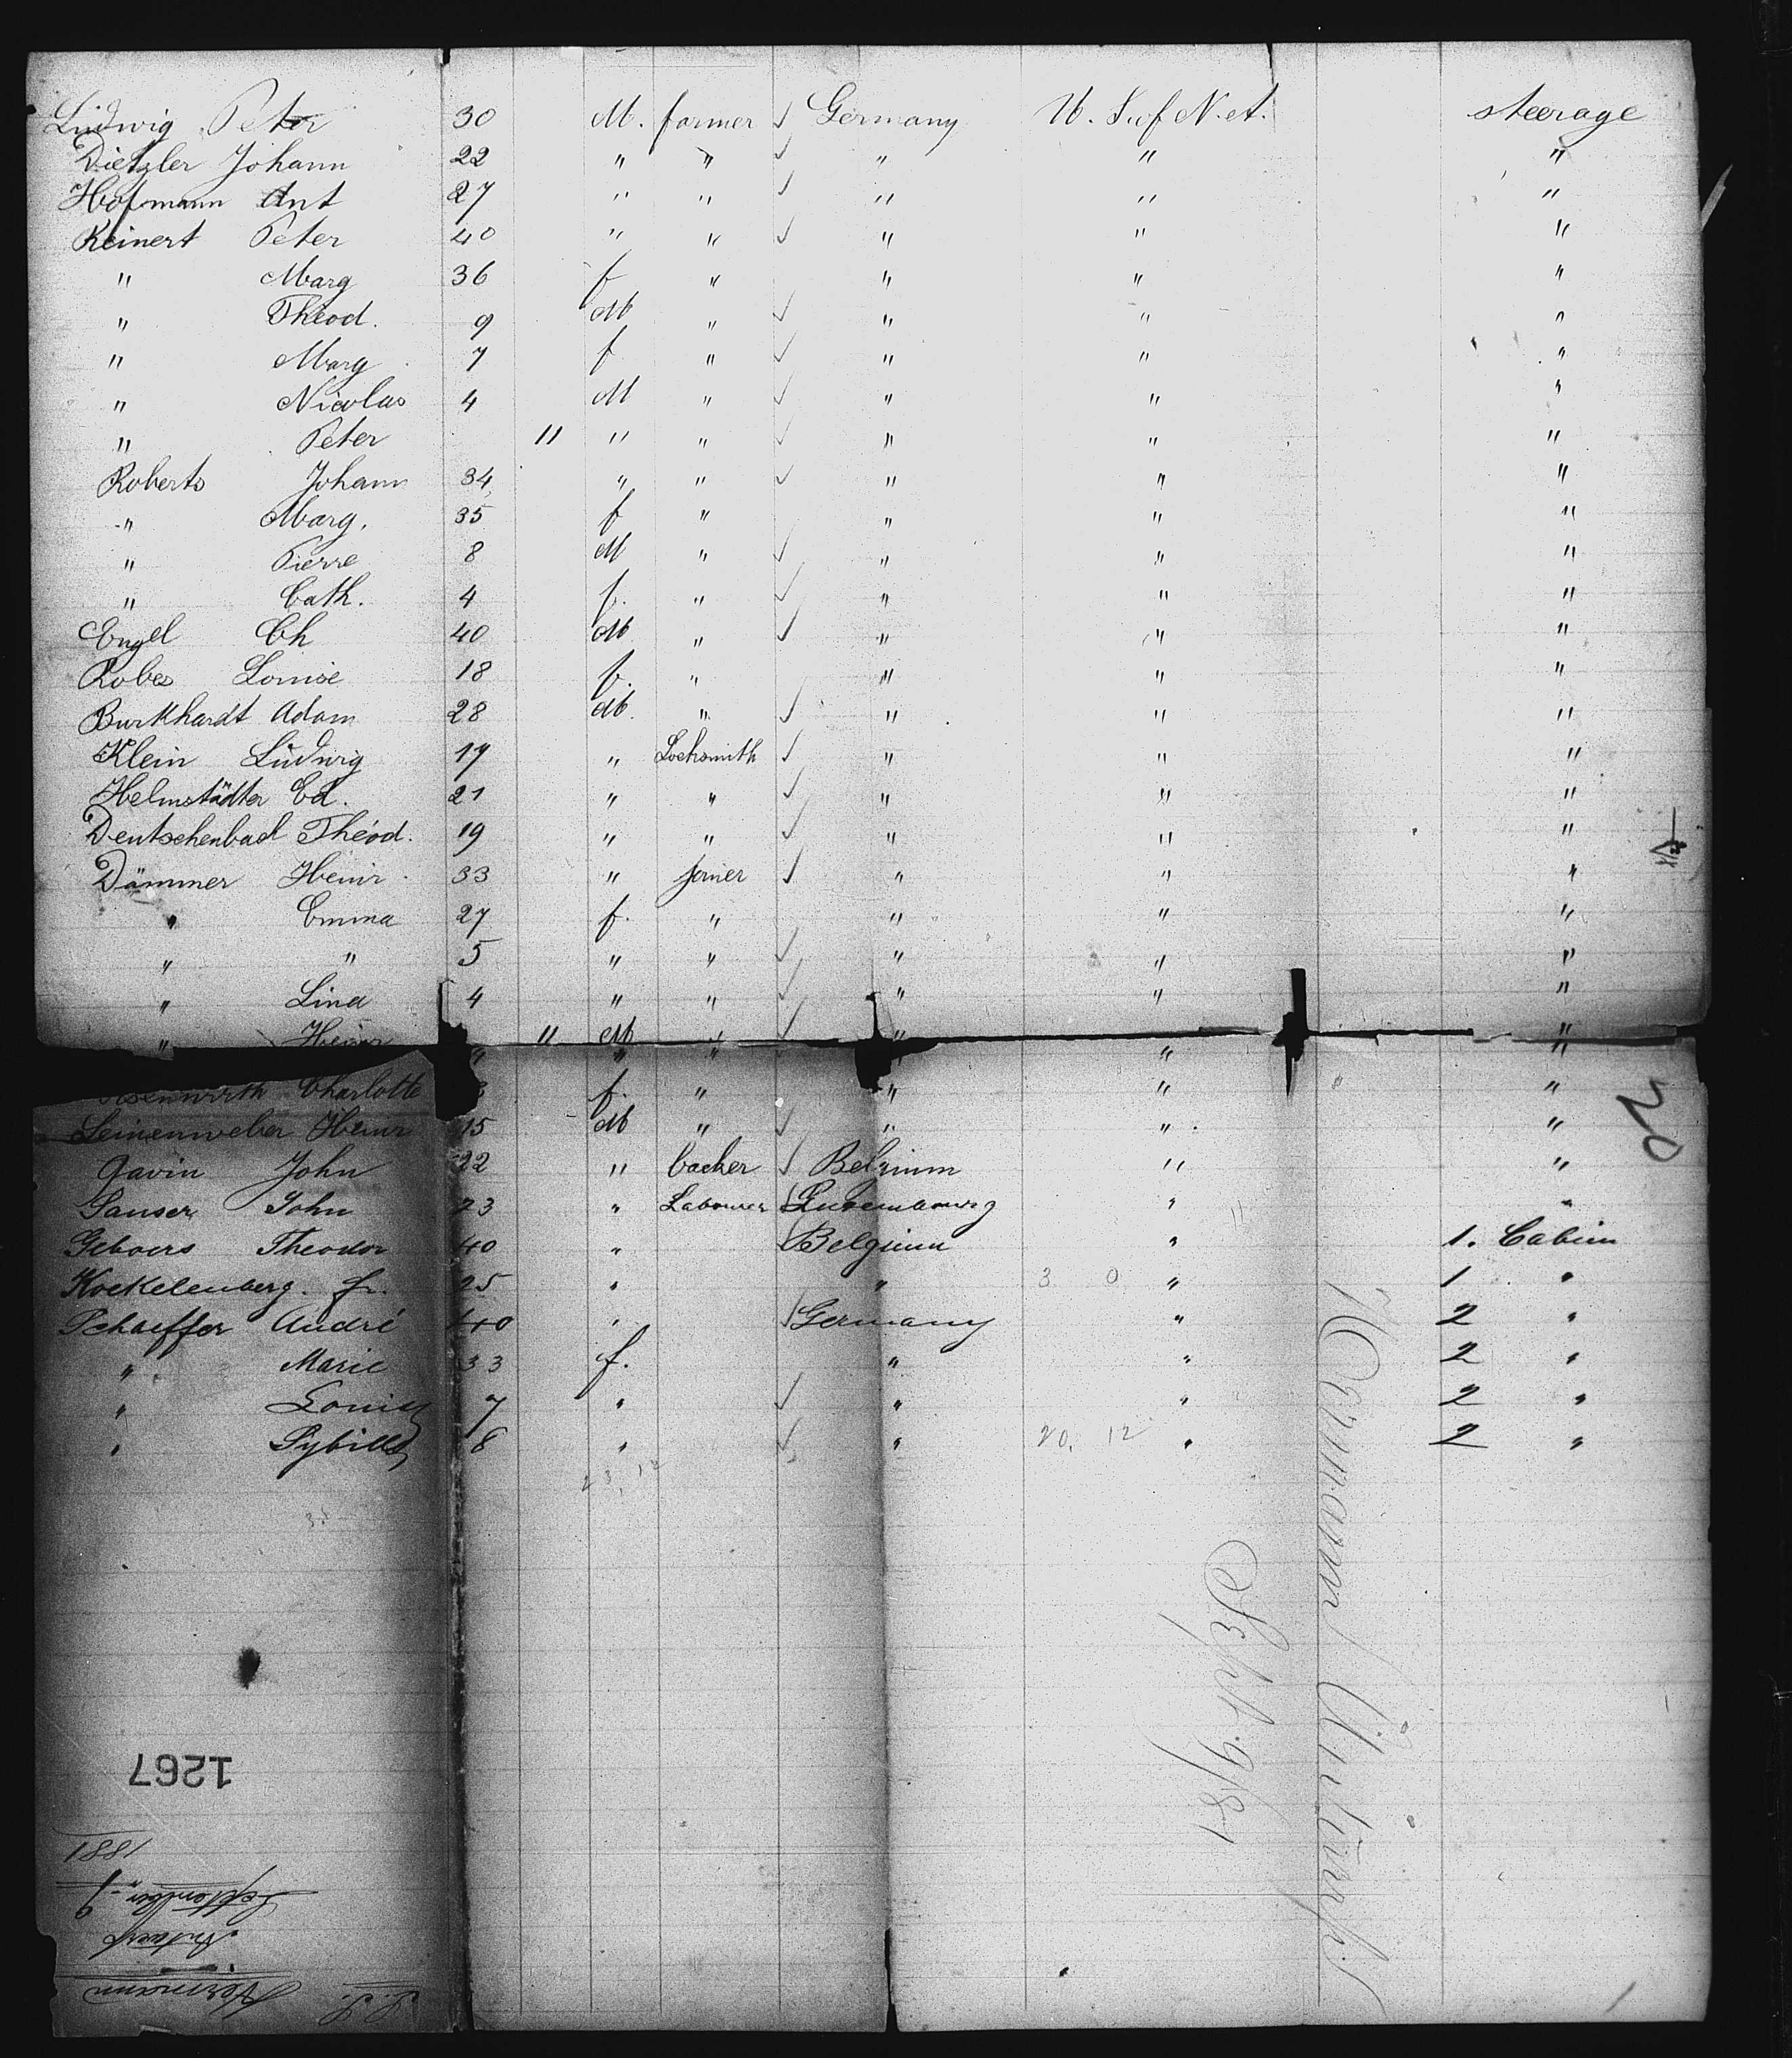 Ludwig Peter 30 M. farmer ✓ Germany U. S. of N. A. steerage
Dietzler Johann 22 " " ✓ " " "
Hofmann Ant 27 " " ✓ " " "
Reinert Peter 40 " " ✓ " " "
" Marg 36 f " " " "
" Théod. 9 M " ✓ " " "
" Marg 7 f " ✓ " " "
" Nicolas 4 M " ✓ " " "
" Peter 11 " " ✓ " " "
Roberts Johann 34 " " ✓ " " "
" Marg. 35 f " " " "
" Pierre 8 M " ✓ " " "
" Cath. 4 f. " ✓ " " "
Engel Ch 40 M " ✓ " " "
Robes Louise 18 f. " " " "
Burkhardt Adam 28 M. " ✓ " " "
Klein Ludwig 17 " Locksmith ✓ " " "
Helmstädter Ed. 21 " " ✓ " " "
Deutschenbach Théod. 19 " " ✓ " " "
Dämmer Heinr. 33 " joiner ✓ " " "
" Emma 27 f. " " " "
" " 5 " " ✓ " " "
" Lina 4 " " ✓ " " "
" Heinr 11 M " ✓ " "
" " " " "
Charlotte f. " " " "
Leinenweber Heinr 15 M " ✓ " " "
Gavin John 22 " backer ✓ Belgium " "
Sanser John 23 " Labourer ✓ Luxembourg " "
Geboers Theodor 40 " ✓ Belgium " 1. Cabin
Koekelenberg. fr. 25 " " 3 0 " 1 "
Schaeffer André 40 " ✓ Germany " 2 "
" Marie 33 f. " " 2 "
" Louise 7 " ✓ " " 2 "
" Sybilla 8 " ✓ " 20. 12 " 2 "
23. 12
20
Hermann
Sept. 9/81
1267
S. S. Hermann
Antwerp
September 9
1881